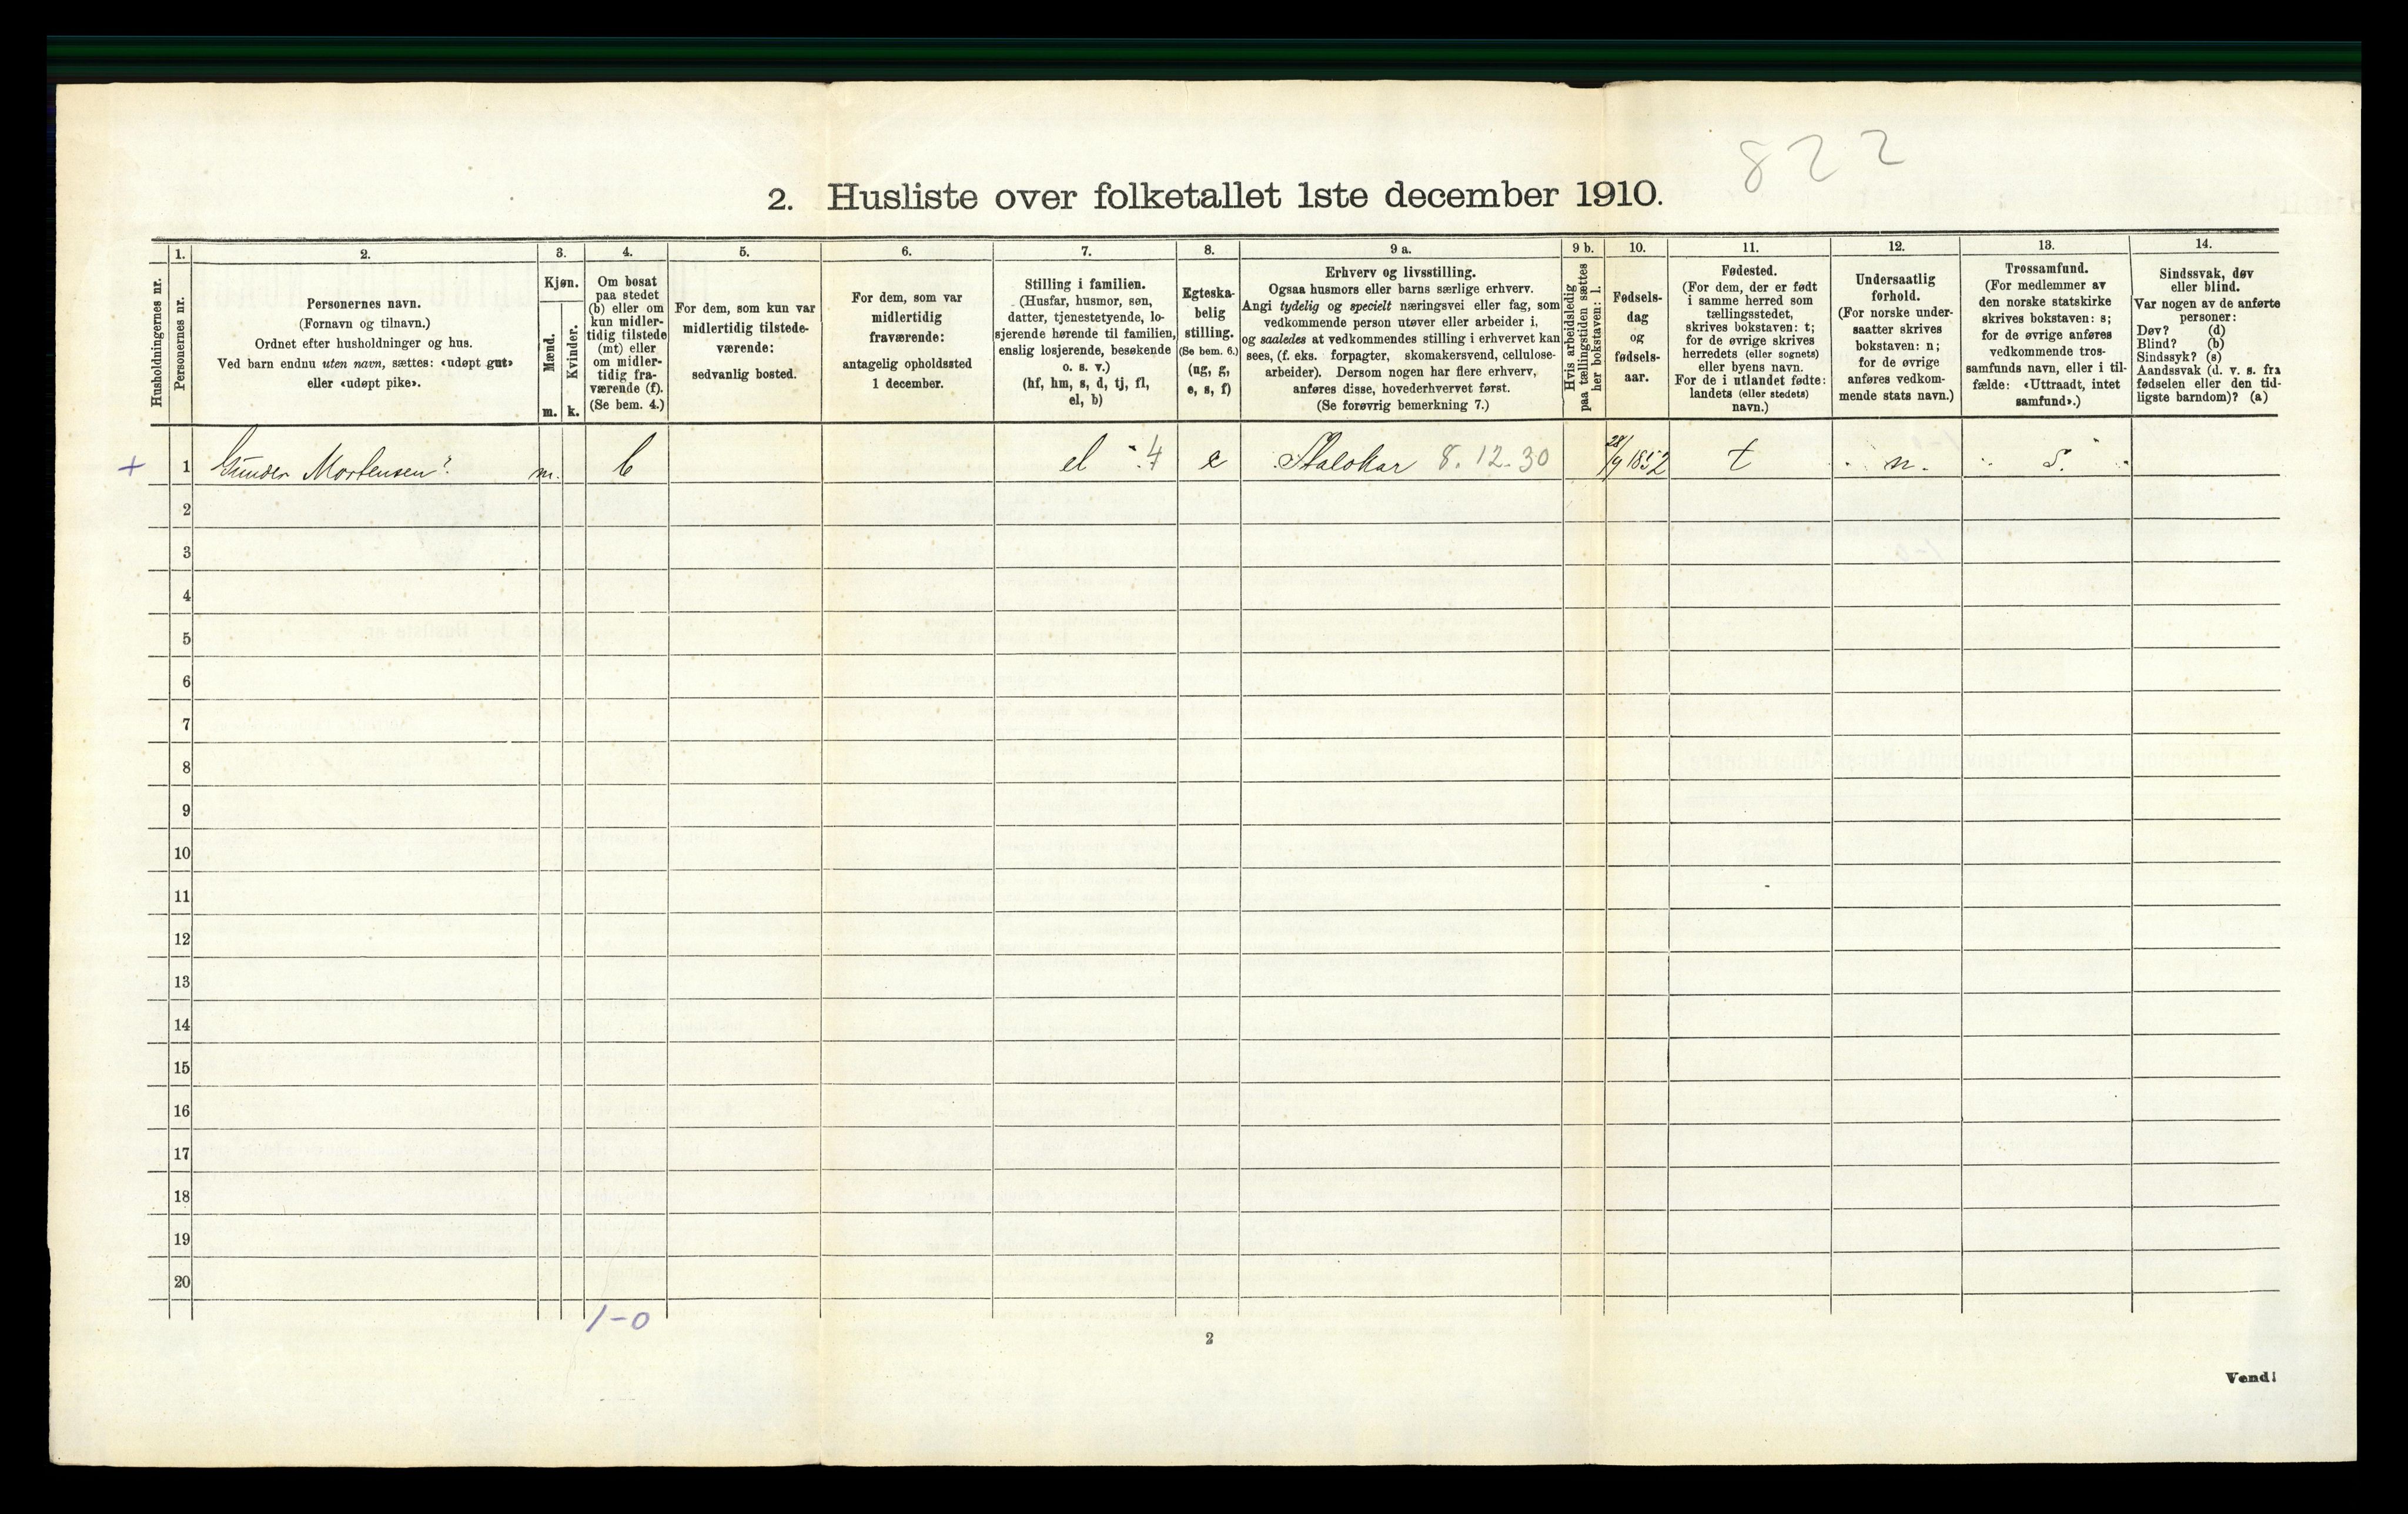 822
2. Husliste over folketallet 1ste december 1910.
Husholdningernes nr.
1.
Personernes nr.
2.
Personernes navn.
(Fornavn og tilnavn.)
Ordnet efter husholdninger og hus.
Ved barn endnu uten navn, sættes: «udøpt gut»
eller «udøpt pike».
3.
Kjøn.
Mænd.
m.
Kvinder.
k.
4.
Om bosat
paa stedet
(b) eller om
kun midler-
tidig tilstede
(mt) eller
om midler-
tidig fra-
værende (f).
(Se bem. 4.)
5.
For dem, som kun var
midlertidig tilstede-
værende:
sedvanlig bosted.
6.
For dem, som var
midlertidig
fraværende:
antagelig opholdssted
1 december.
7.
Stilling i familien.
(Husfar, husmor, søn,
datter, tjenestetyende, lo-
sjerende hørende til familien,
enslig losjerende, besøkende
o. s. v.)
(hf, hm, s, d, tj, fl,
el, b)
8.
Egteska-
belig
stilling.
(Se bem. 6.)
(ug, g,
e, s, f)
9 a.
Erhverv og livsstilling.
Ogsaa husmors eller barns særlige erhverv.
Angi tydelig og specielt næringsvei eller fag, som
vedkommende person utøver eller arbeider i,
og saaledes at vedkommendes stilling i erhvervet kan
sees, (f. eks. forpagter, skomakersvend, cellulose-
arbeider). Dersom nogen har flere erhverv,
anføres disse, hovederhvervet først.
(Se forøvrig bemerkning 7.)
9 b.
Hvis arbeidsledig
paa tællingstiden sættes
her bokstaven: l.
10.
Fødsels-
dag
og
fødsels-
aar.
11.
Fødested.
(For dem, der er født
i samme herred som
tællingsstedet,
skrives bokstaven: t;
for de øvrige skrives
herredets (eller sognets)
eller byens navn.
For de i utlandet fødte:
landets (eller stedets)
navn.)
12.
Undersaatlig
forhold.
(For norske under-
saatter skrives
bokstaven: n;
for de øvrige
anføres vedkom-
mende stats navn.)
13.
Trossamfund.
(For medlemmer av
den norske statskirke
skrives bokstaven: s;
for de øvrige anføres
vedkommende tros-
samfunds navn, eller i til-
fælde: «Uttraadt, intet
samfund».)
14.
Sindssvak, døv
eller blind.
Var nogen av de anførte
personer:
Døv? (d)
Blind? (b)
Sindssyk? (s)
Aandssvak (d. v. s. fra
fødselen eller den tid-
ligste barndom)? (a)
+ 1 Gunder Mortensen? m. b el 4 e 8.12.30 28/9 1852 t n. s.
2
3
4
5
6
7
8
9
10
11
12
13
14
15
16
17
18
19
20
1-0
2
Vend!